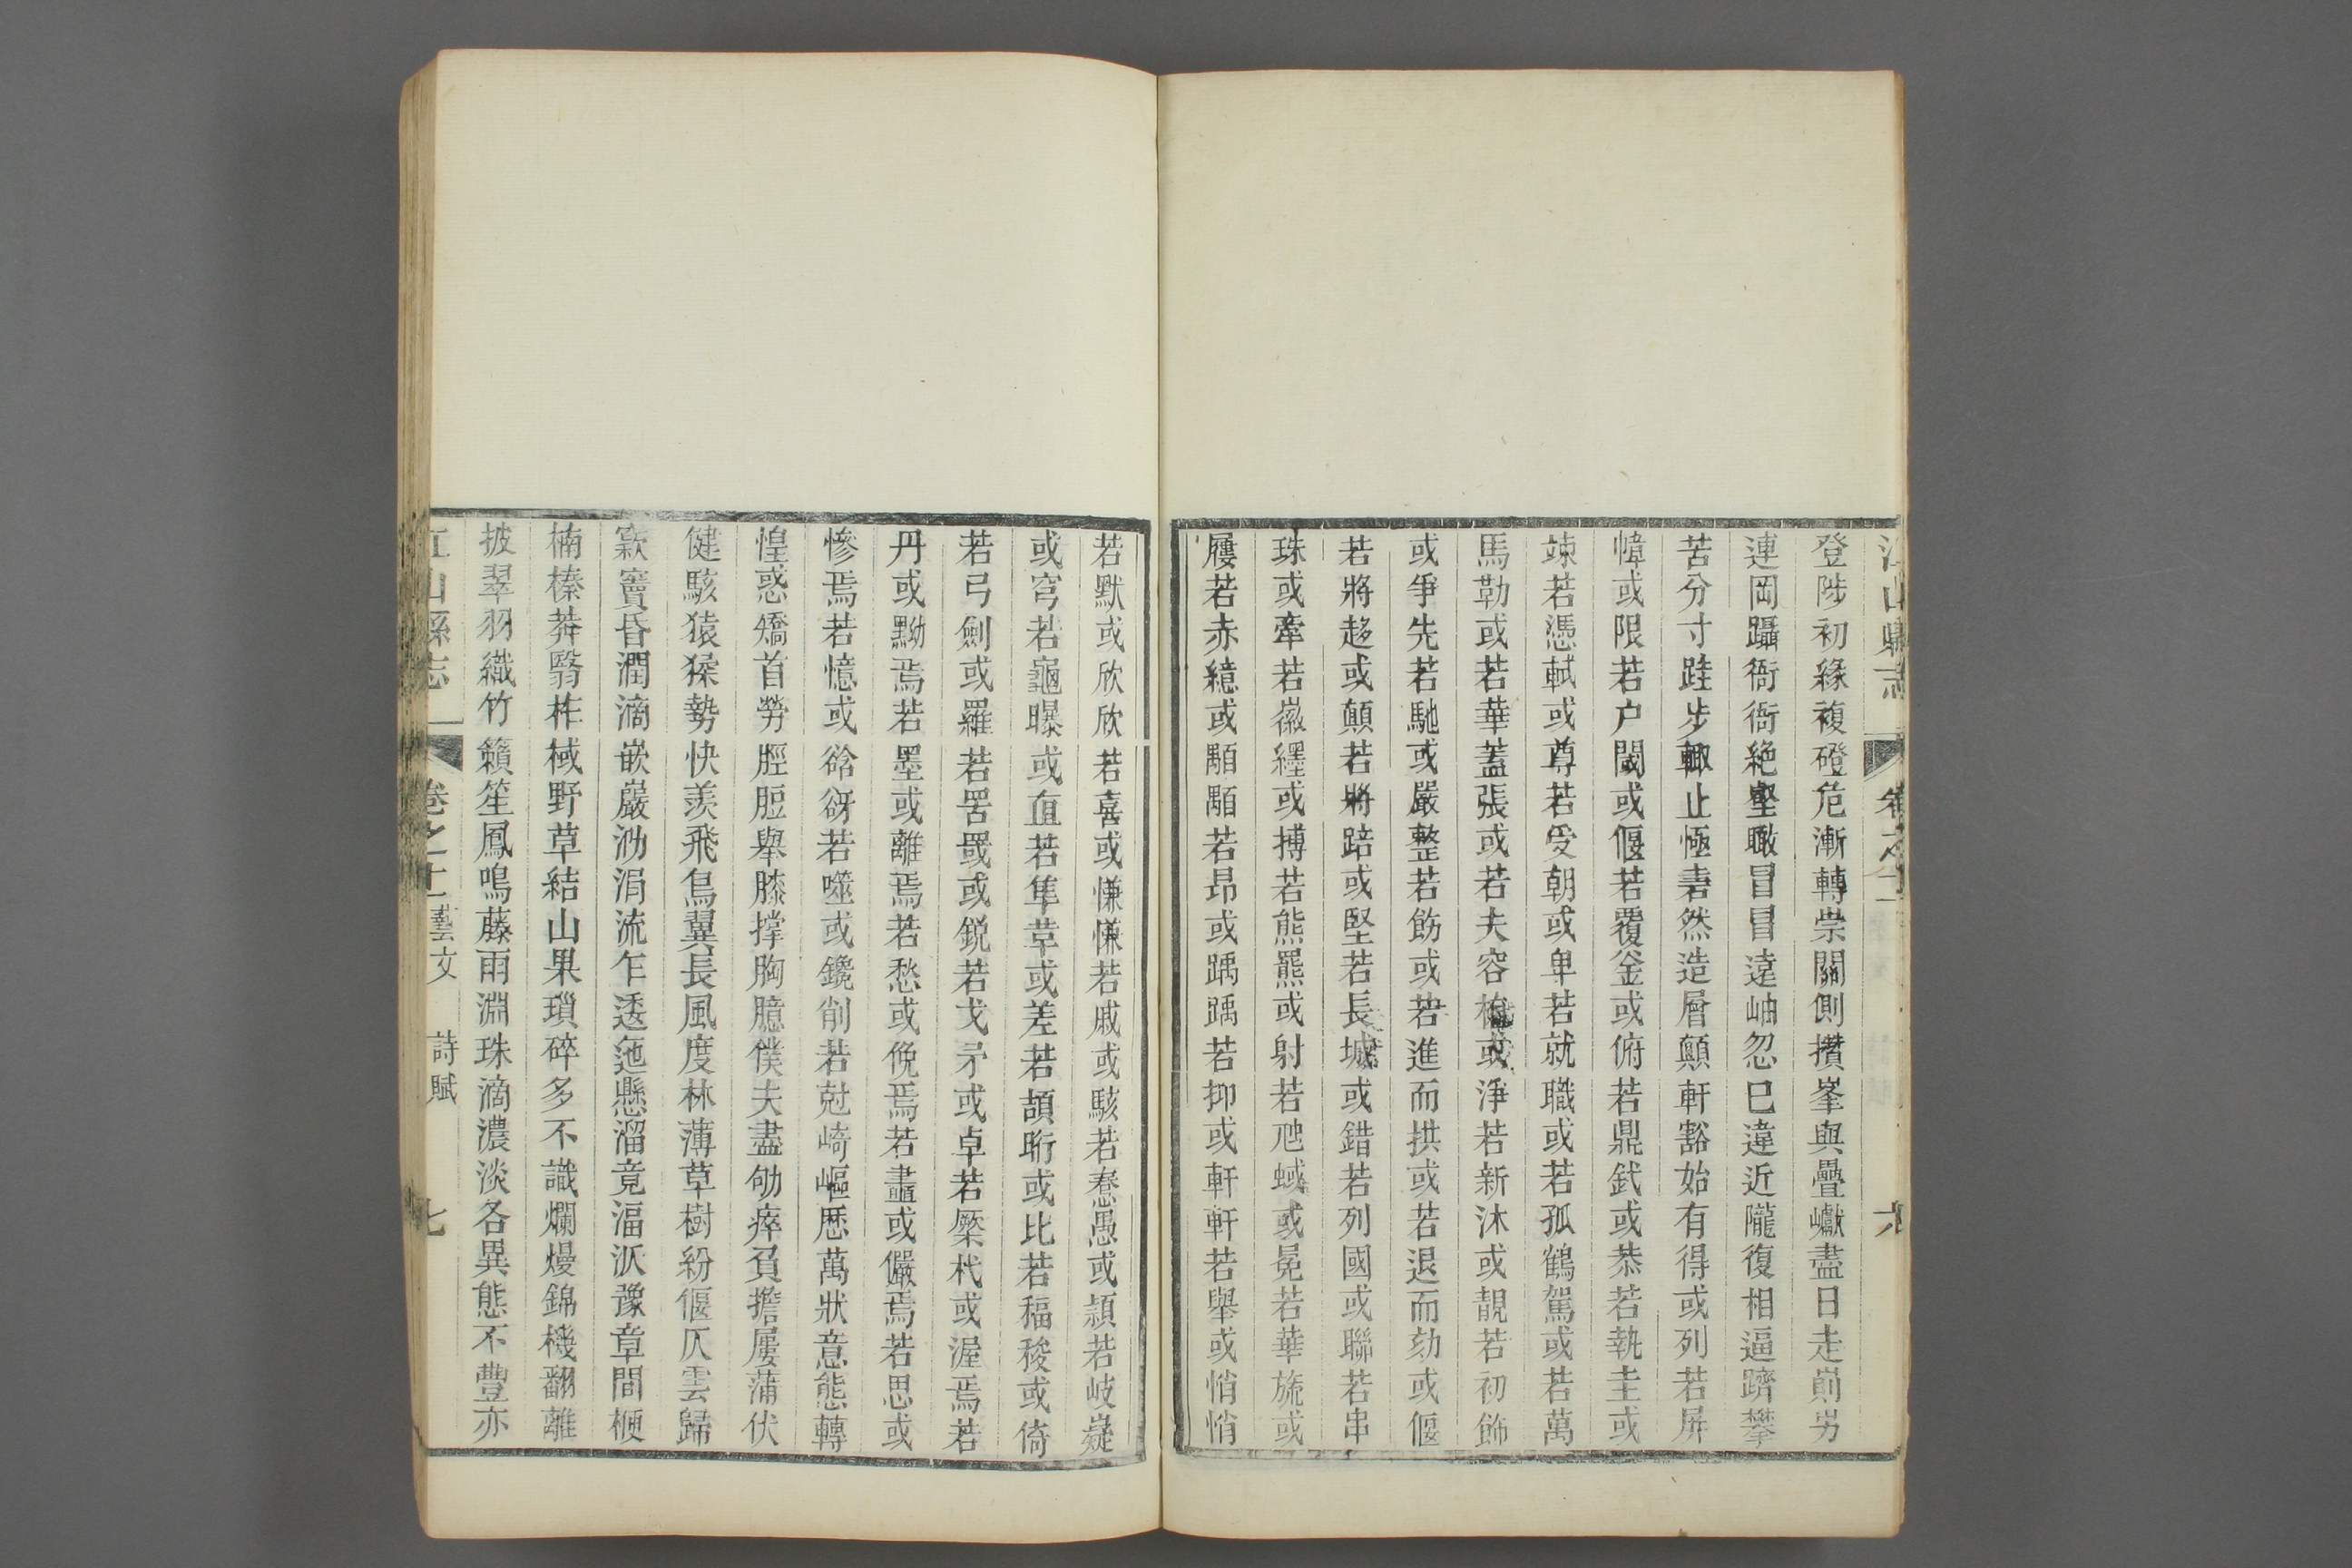 江山縣志 卷之十一 六
登陟初緣複磴危漸轉崇關側攢峯與疊巘盡日走崱屴
連岡躡衙衙絶壑瞰冒冒遠岫忽巳違近隴復相逼躋攀
苦分寸跬步輙止極砉然造層顛軒豁始有得或列若屏
幛或限若户閾或偃若覆釜或俯若鼎鉽或恭若執圭或
竦若憑軾或尊若受朝或卑若就職或若孤鶴駕或若萬
馬勒或若華蓋張或若夫容 或淨若新沐或靚若初飾
或爭先若馳或嚴整若飭或若進而拱或若退而劾或偃
若將趍或顛若將踣或堅若長城或錯若列國或聯若串
珠或牽若徽纆或搏若熊羆或射若虺蜮或冕若華旒或
屨若赤繶或顒顒若昂或踽踽若抑或軒軒若舉或悄悄
若默或欣欣若喜或慊慊若戚或駭若惷愚或頴若岐嶷
或穹若龜曝或直若隼 或差若頡 或比若稫稜或倚
若弓劍或羅若罟罭或鋭若戈矛或卓若橜杙或渥焉若
丹或黝焉若墨或離焉若愁或俛焉若 或儼焉若思或
慘焉若憶或谽谺若噬或鑱削若尅崎嶇歷萬狀意態轉
惶惑矯首勞脛脰舉膝撑胸臆僕夫盡劬瘁負擔屢蒲伏
健駭猿猱勢快羨飛鳥翼長風度林薄草樹紛偃仄雲歸
窽竇昏潤滴嵌巖泐涓流乍透迤懸溜竟湢 豫章間楩
楠榛莽翳柞棫野草結山果瑣碎多不識爛熳錦機翻離
披翠羽織竹籟笙鳳鳴藤雨淵珠滴濃淡各異態不豐亦
江山縣志 卷之十一 藝文 詩賦 七